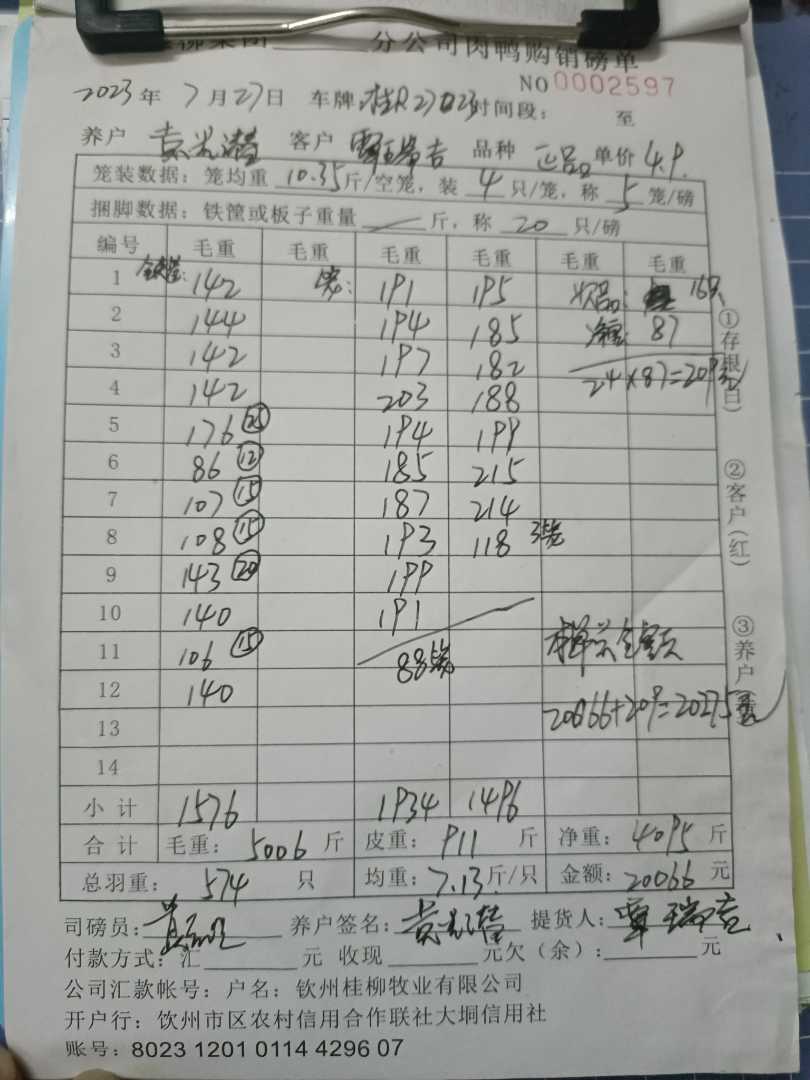 分公司肉鸭购销磅单
NO 0002597
2023 年 7 月 27 日 车牌 桂R27023 时间段: 至
养户 黄光潜 客户 覃瑞吉 品种 正品 单价 4.9
笼装数据: 笼均重 10.35 斤/空笼, 装 4 只/笼, 称 5 笼/磅
捆脚数据: 铁筐或板子重量 斤, 称 20 只/磅
编号 毛重 毛重 毛重 毛重 毛重 毛重
1 142 191 195 次品: 16只
2 144 194 185 净重 87
3 142 197 182 24×87=209元
4 142 203 188
5 176 (25) 194 199
6 86 (12) 185 215
7 107 (15) 187 214
8 108 (15) 193 118 3笼
9 143 (20) 199
10 140 191
11 106 (15) 88笼 本单总金额
12 140 20066+209=20275元
13
14
小计 1576 1934 1496
合计 毛重: 5006 斤 皮重: 911 斤 净重: 4095 斤
总羽重: 574 只 均重: 7.13 斤/只 金额: 20066 元
司磅员: 养户签名: 黄光潜 提货人: 覃瑞吉
付款方式: 汇 元 收现 元欠(余): 元
公司汇款帐号: 户名: 钦州桂柳牧业有限公司
开户行: 钦州市区农村信用合作联社大垌信用社
账号: 8023 1201 0114 4296 07
①存根(白)
②客户(红)
③养户